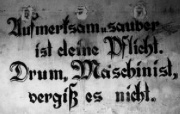 Aufmerksam u. sauber
ist deine Pflicht.
Drum, Maschinist,
vergiß es nicht.